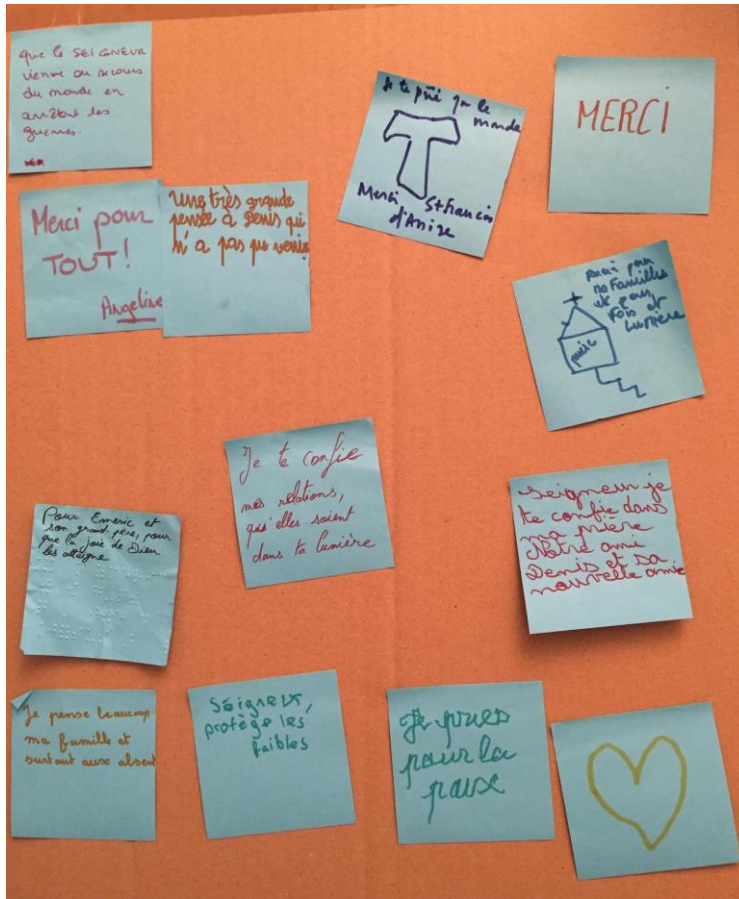 que le SEIGNEUR
vienne au secours
du monde en
arrêtant les
guerres.
Je te prie pr le
monde
Merci St François
d'Assise
MERCI
Merci pour
TOUT!
Angeline
Une très grande
pensée à Denis qui
n'a pas pu venir
merci pour
nos Familles
et pour
Fois et
Lumière
merci
Je te confie
mes relations,
qu'elles soient
dans ta lumière
Seigneur je
te confie dans
ma prière
Notre ami
Denis et sa
nouvelle amie
Pour Emeric et
son grand-père, pour
que la joie de Dieu
les atteigne
Je pense beaucoup
ma famille et
surtout aux absent
Seigneur,
protège les
faibles
Je prues
pour la
paix